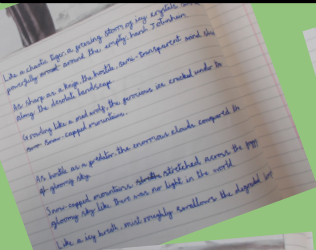 Like a chaotic tiger, a growing storm of icy crystals
powerfully around the empty, harsh Jotunheim
As sharp as a knife, the hostile, semi-transparent wind
along the desolate landscape.
Growling like a mad wolf, the ice creaked under
snow-capped mountains.
As hostile as a predator, the enormous clouds compared to
gloomy sky.
Snow-capped mountains stretched across the foggy
gloomy sky like there was no light in the world.
Like a icy breath, mist roughly swallows the